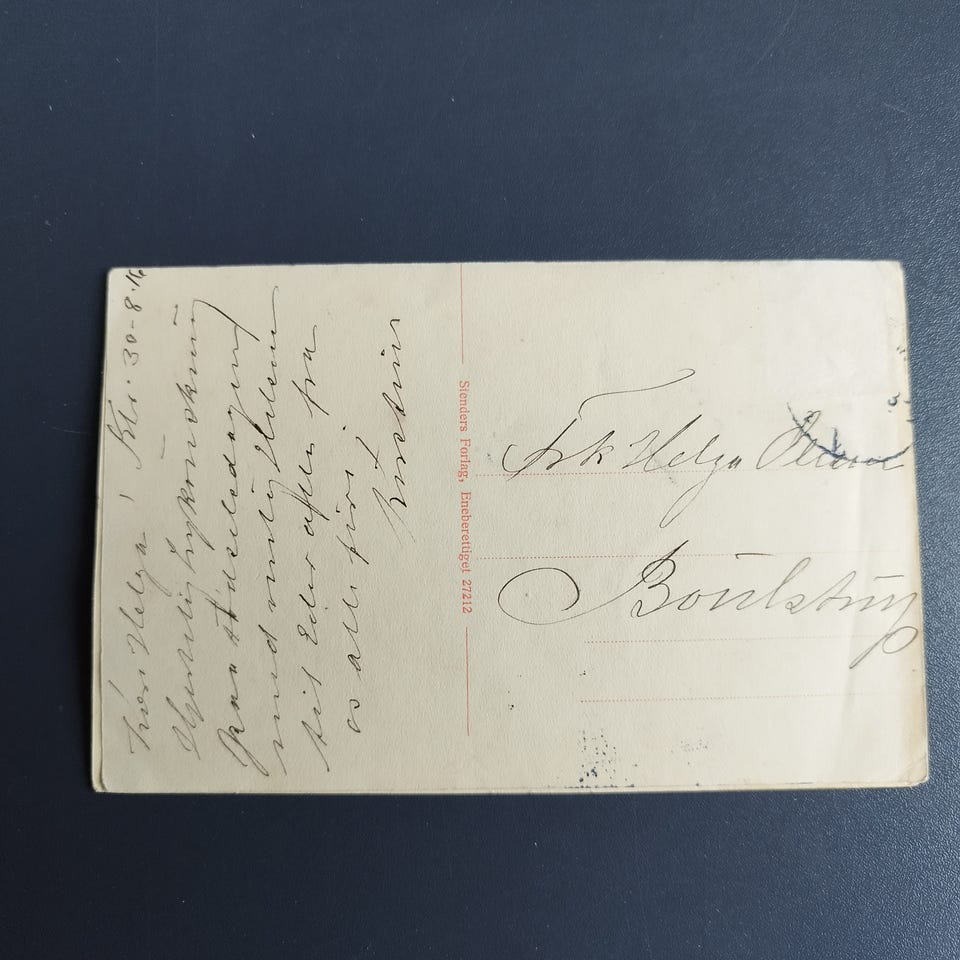 Kære Helga, Kbh. 30-8-16
Hjertelig Lykønskning
paa Fødselsdagen
med venlig Hilsen
til Eder alle fra
os alle
Stenders Forlag, Eneberettiget 27212
Frk Helga
Boulstrup